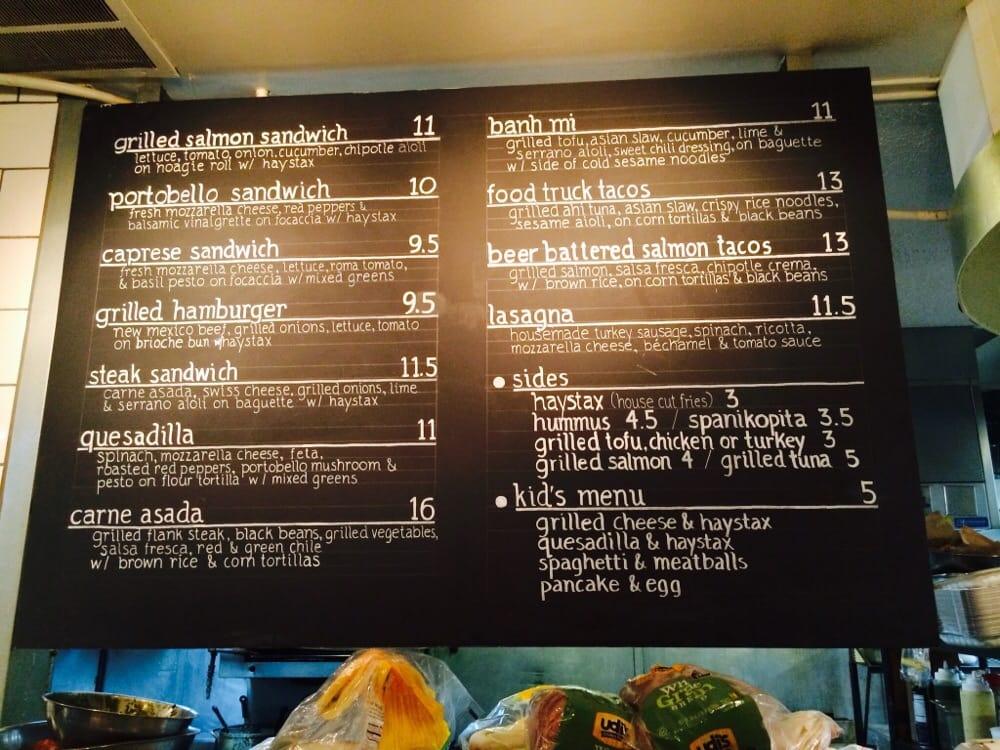 grilled salmon sandwich 11
lettuce, tomato, onion, cucumber, chipotle aioli
on hoagie roll w/ haystax
portobello sandwich 10
fresh mozzarella cheese, red peppers &
balsamic vinaigrette on focaccia w/ haystax
caprese sandwich 9.5
fresh mozzarella cheese, lettuce, roma tomato,
& basil pesto on focaccia w/ mixed greens
grilled hamburger 9.5
new mexico beef, grilled onions, lettuce, tomato
on brioche bun haystax
steak sandwich 11.5
carne asada, swiss cheese, grilled onions, lime
& serrano aioli on baguette w/ haystax
quesadilla 11
spinach, mozzarella cheese, feta,
roasted red peppers, portobello mushroom &
pesto on flour tortilla w/ mixed greens
carne asada 16
grilled flank steak, black beans, grilled vegetables,
salsa fresca, red & green chile
w/ brown rice & corn tortillas
banh mi 11
grilled tofu, asian slaw, cucumber, lime &
serrano aioli, sweet chili dressing, on baguette
w/ side of cold sesame noodles
food truck tacos 13
grilled ahi tuna, asian slaw, crispy rice noodles,
sesame aioli, on corn tortillas & black beans
beer battered salmon tacos 13
grilled salmon, salsa fresca, chipotle crema,
w/ brown rice, on corn tortillas & black beans
lasagna 11.5
housemade turkey sausage, spinach, ricotta,
mozzarella cheese, béchamel & tomato sauce
• sides
haystax (house cut fries) 3
hummus 4.5 / spanikopita 3.5
grilled tofu, chicken or turkey 3
grilled salmon 4 / grilled tuna 5
• kid's menu 5
grilled cheese & haystax
quesadilla & haystax
spaghetti & meatballs
pancake & egg
udi's
udi's